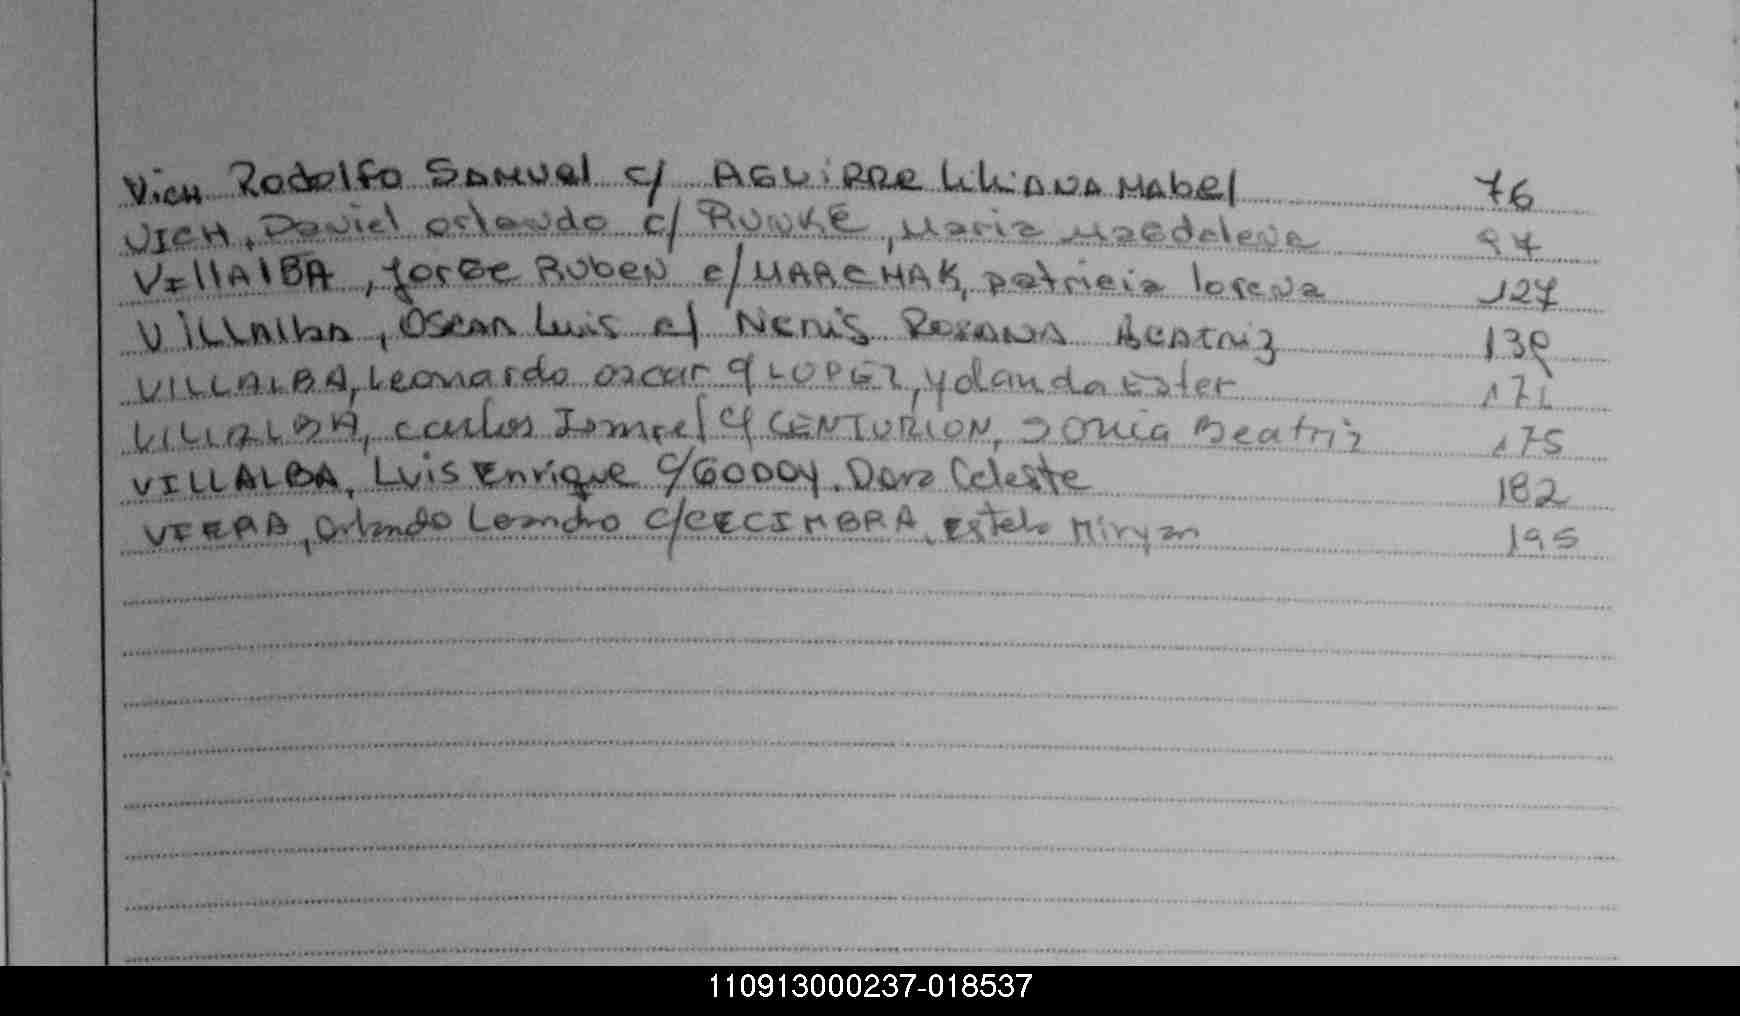 Vich Rodolfo Samuel c/ AGUIRRE Liliana Mabel 76
VICH, Daniel Orlando c/ RUNKE, Maria Magdalena 97
VillALBA, Jorge Ruben c/ MARCHAK, patricia lorena 127
VILLALBA, Oscar Luis c/ Neris Rosana Beatriz 139
VILLALBA, Leonardo oscar c/ LOPEZ, Yolanda Ester 171
VILLALBA, Carlos Ismael c/ CENTURION, Sonia Beatriz 175
VILLALBA, Luis Enrique c/ GODOY. Dora Celeste 182
VIERA, Orlando Leandro c/ CECIMBRA, Estela Miryan 195
110913000237-018537